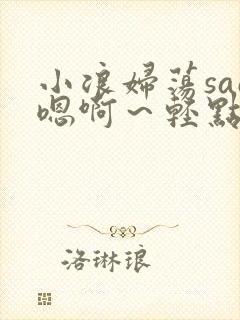 小浪婦蕩sao
嗯啊～輕點
洛琳琅